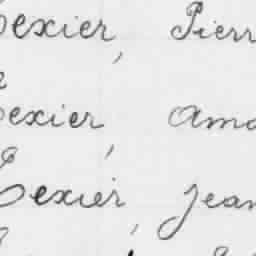 Texier, Pierr
Texier, Ama
Texier, Jean